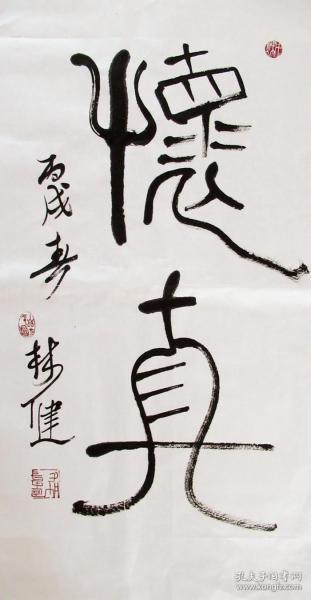 懷真
丙戌春
林健
孔夫子旧书网
kongfz.com